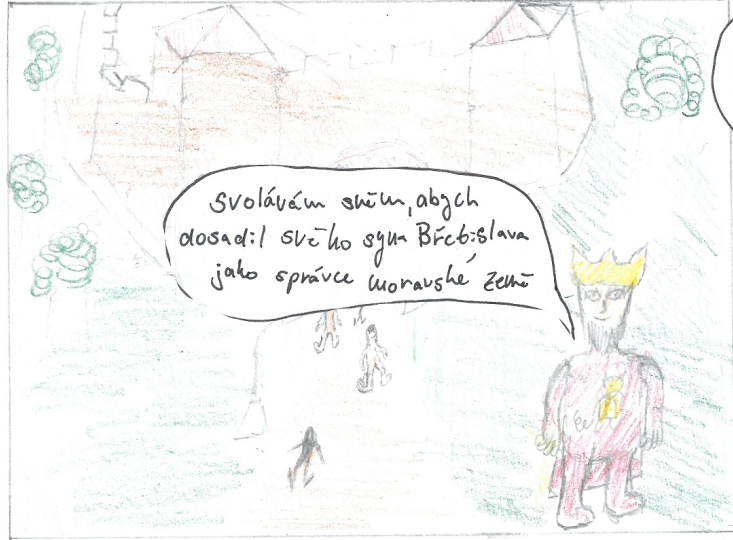 Svolávám sněm, abych
dosadil svého syna Břetislava
jako správce moravské země